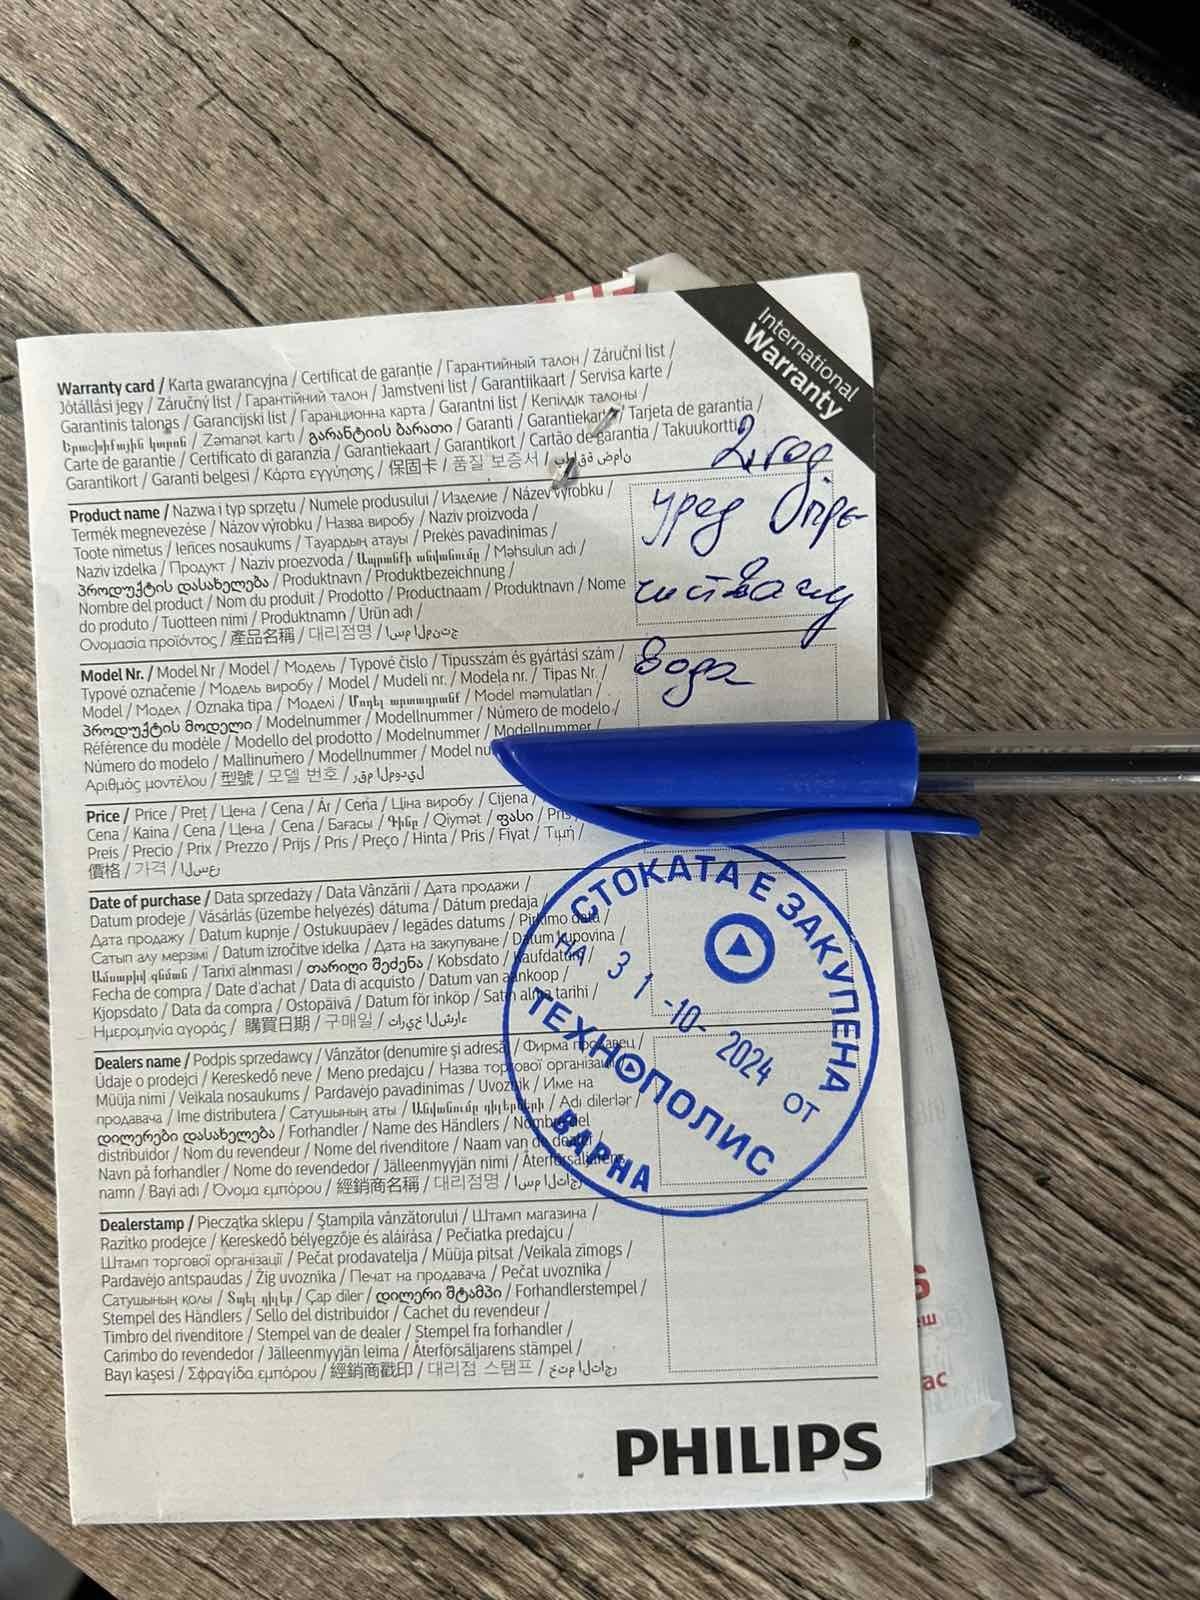 International
Warranty
Warranty card / Karta gwarancyjna / Certificat de garanție / Гарантийный талон / Záruční list /
Jótállási jegy / Záručný list / Гарантійний талон / Jamstveni list / Garantiikaart / Servisa karte /
Garantinis talonas / Garancijski list / Гаранционна карта / Garantni list / Кепілдік талоны /
Երաշխիքային կտրոն / Zəmanət kartı / გარანტიის ბარათი / Garanti / Garantiekaart / Tarjeta de garantía /
Carte de garantie / Certificato di garanzia / Garantiekaart / Garantikort / Cartão de garantia / Takuukortti /
Garantikort / Garanti belgesi / Κάρτα εγγύησης / 保固卡 / 품질 보증서 / بطاقة ضمان
2 год
Product name / Nazwa i typ sprzętu / Numele produsului / Изделие / Název výrobku /
Termék megnevezése / Názov výrobku / Назва виробу / Naziv proizvoda /
Toote nimetus / Ierīces nosaukums / Тауардың атауы / Prekės pavadinimas /
Naziv izdelka / Продукт / Naziv proezvoda / Ապրանքի անվանումը / Məhsulun adı /
პროდუქტის დასახელება / Produktnavn / Produktbezeichnung /
Nombre del product / Nom du produit / Prodotto / Productnaam / Produktnavn / Nome
do produto / Tuotteen nimi / Produktnamn / Ürün adı /
Ονομασία προϊόντος / 產品名稱 / 대리점명 / اسم المنتج
уред
чистващ
вода
Model Nr. / Model Nr / Model / Модель / Typové číslo / Típusszám és gyártási szám /
Typové označenie / Модель виробу / Model / Mudeli nr. / Modeļa nr. / Tipas Nr. /
Model / Модел / Oznaka tipa / Моделі / Մոդել արտադրանք / Model məmulatları /
პროდუქტის მოდელი / Modelnummer / Modellnummer / Número de modelo /
Référence du modèle / Modello del prodotto / Modelnummer / Modellnummer /
Número do modelo / Mallinumero / Modellnummer / Model nu
Αριθμός μοντέλου / 型號 / 모델 번호 / رقم الموديل
Price / Price / Preț / Цена / Cena / Ár / Cena / Ціна виробу / Cijena /
Cena / Kaina / Cena / Цена / Cena / Бағасы / Գինը / Qiymət / ფასი / Pris
Preis / Precio / Prix / Prezzo / Prijs / Pris / Preço / Hinta / Pris / Fiyat / Τιμή /
價格 / 가격 / السعر
Date of purchase / Data sprzedaży / Data Vânzării / Дата продажи /
Datum prodeje / Vásárlás (üzembe helyézés) dátuma / Dátum predaja /
Дата продажу / Datum kupnje / Ostukuupäev / Iegādes datums / Pirkimo data /
Сатып алу мерзімі / Datum izročitve idelka / Дата на закупуване / Datum kupovina /
Ամսաթիվ գնման / Tarixi alınması / თარიღი შეძენა / Kobsdato / Kaufdatum /
Fecha de compra / Date d'achat / Data di acquisto / Datum van aankoop /
Kjopsdato / Data da compra / Ostopäivä / Datum för inköp / Satin alma tarihi /
Ημερομηνία αγοράς / 購買日期 / 구매일 / تاريخ الشراء
Dealers name / Podpis sprzedawcy / Vânzător (denumire și adresă / Фирма продавец /
Údaje o prodejci / Kereskedő neve / Meno predajcu / Назва торгової організації /
Müüja nimi / Veikala nosaukums / Pardavėjo pavadinimas / Uvoznik / Име на
продавача / Ime distributera / Сатушының аты / Անվանումը դիլերների / Adı dilerlər /
დილერები დასახელება / Forhandler / Name des Händlers / Nombre del
distribuidor / Nom du revendeur / Nome del rivenditore / Naam van de dealer /
Navn på forhandler / Nome do revendedor / Jälleenmyyjän nimi / Återförsäljarens
namn / Bayi adı / Όνομα εμπόρου / 經銷商名稱 / 대리점명 / اسم التاجر
СТОКАТА Е ЗАКУПЕНА
НА 31-10-2024 ОТ
ТЕХНОПОЛИС
ВАРНА
Dealerstamp / Pieczątka sklepu / Ștampila vânzătorului / Штамп магазина /
Razítko prodejce / Kereskedő bélyegzője és aláírása / Pečiatka predajcu /
Штамп торгової організації / Pečat prodavatelja / Müüja pitsat /Veikala zīmogs /
Pardavėjo antspaudas / Žig uvoznika / Печат на продавача / Pečat uvoznika /
Сатушының қолы / Տպել դիլեր / Çap diler / დილერი შტამპი / Forhandlerstempel /
Stempel des Händlers / Sello del distribuidor / Cachet du revendeur /
Timbro del rivenditore / Stempel van de dealer / Stempel fra forhandler /
Carimbo do revendedor / Jälleenmyyjän leima / Återförsäljarens stämpel /
Bayı kaşesi / Σφραγίδα εμπόρου / 經銷商戳印 / 대리점 스탬프 / ختم التاجر
PHILIPS